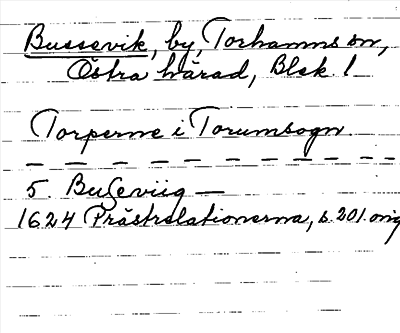 Bussevik, by, Torhamns sn,
Östra härad, Blek. l.
Torperne i Torumsogn.
— — — — — — — — — — —
5. Buſeviig —
1624 Prästrelationerna, s. 201. orig